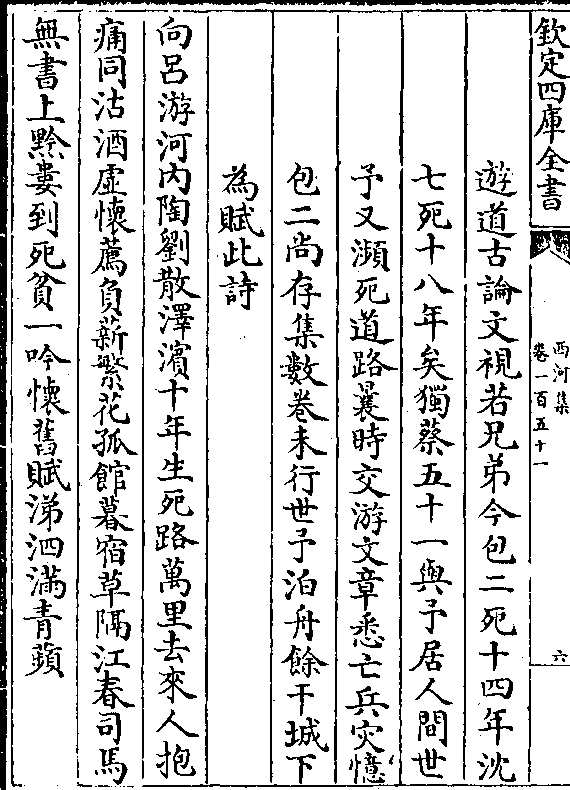 欽定四庫全書
西河集
卷一百五十一
六
遊道古論文視若兄弟今包二死十四年沈
七死十八年矣獨蔡五十一與予居人間世
予又瀕死道路曩時交游文章悉亡兵灾憶
包二尚存集數卷未行世予泊舟餘干城下
為賦此詩
向呂游河內陶劉散澤濱十年生死路萬里去來人抱
痛同沽酒虛懷薦負薪繁花孤館暮宿草隔江春司馬
無書上黔婁到死貧一吟懷舊賦涕泗滿青蘋